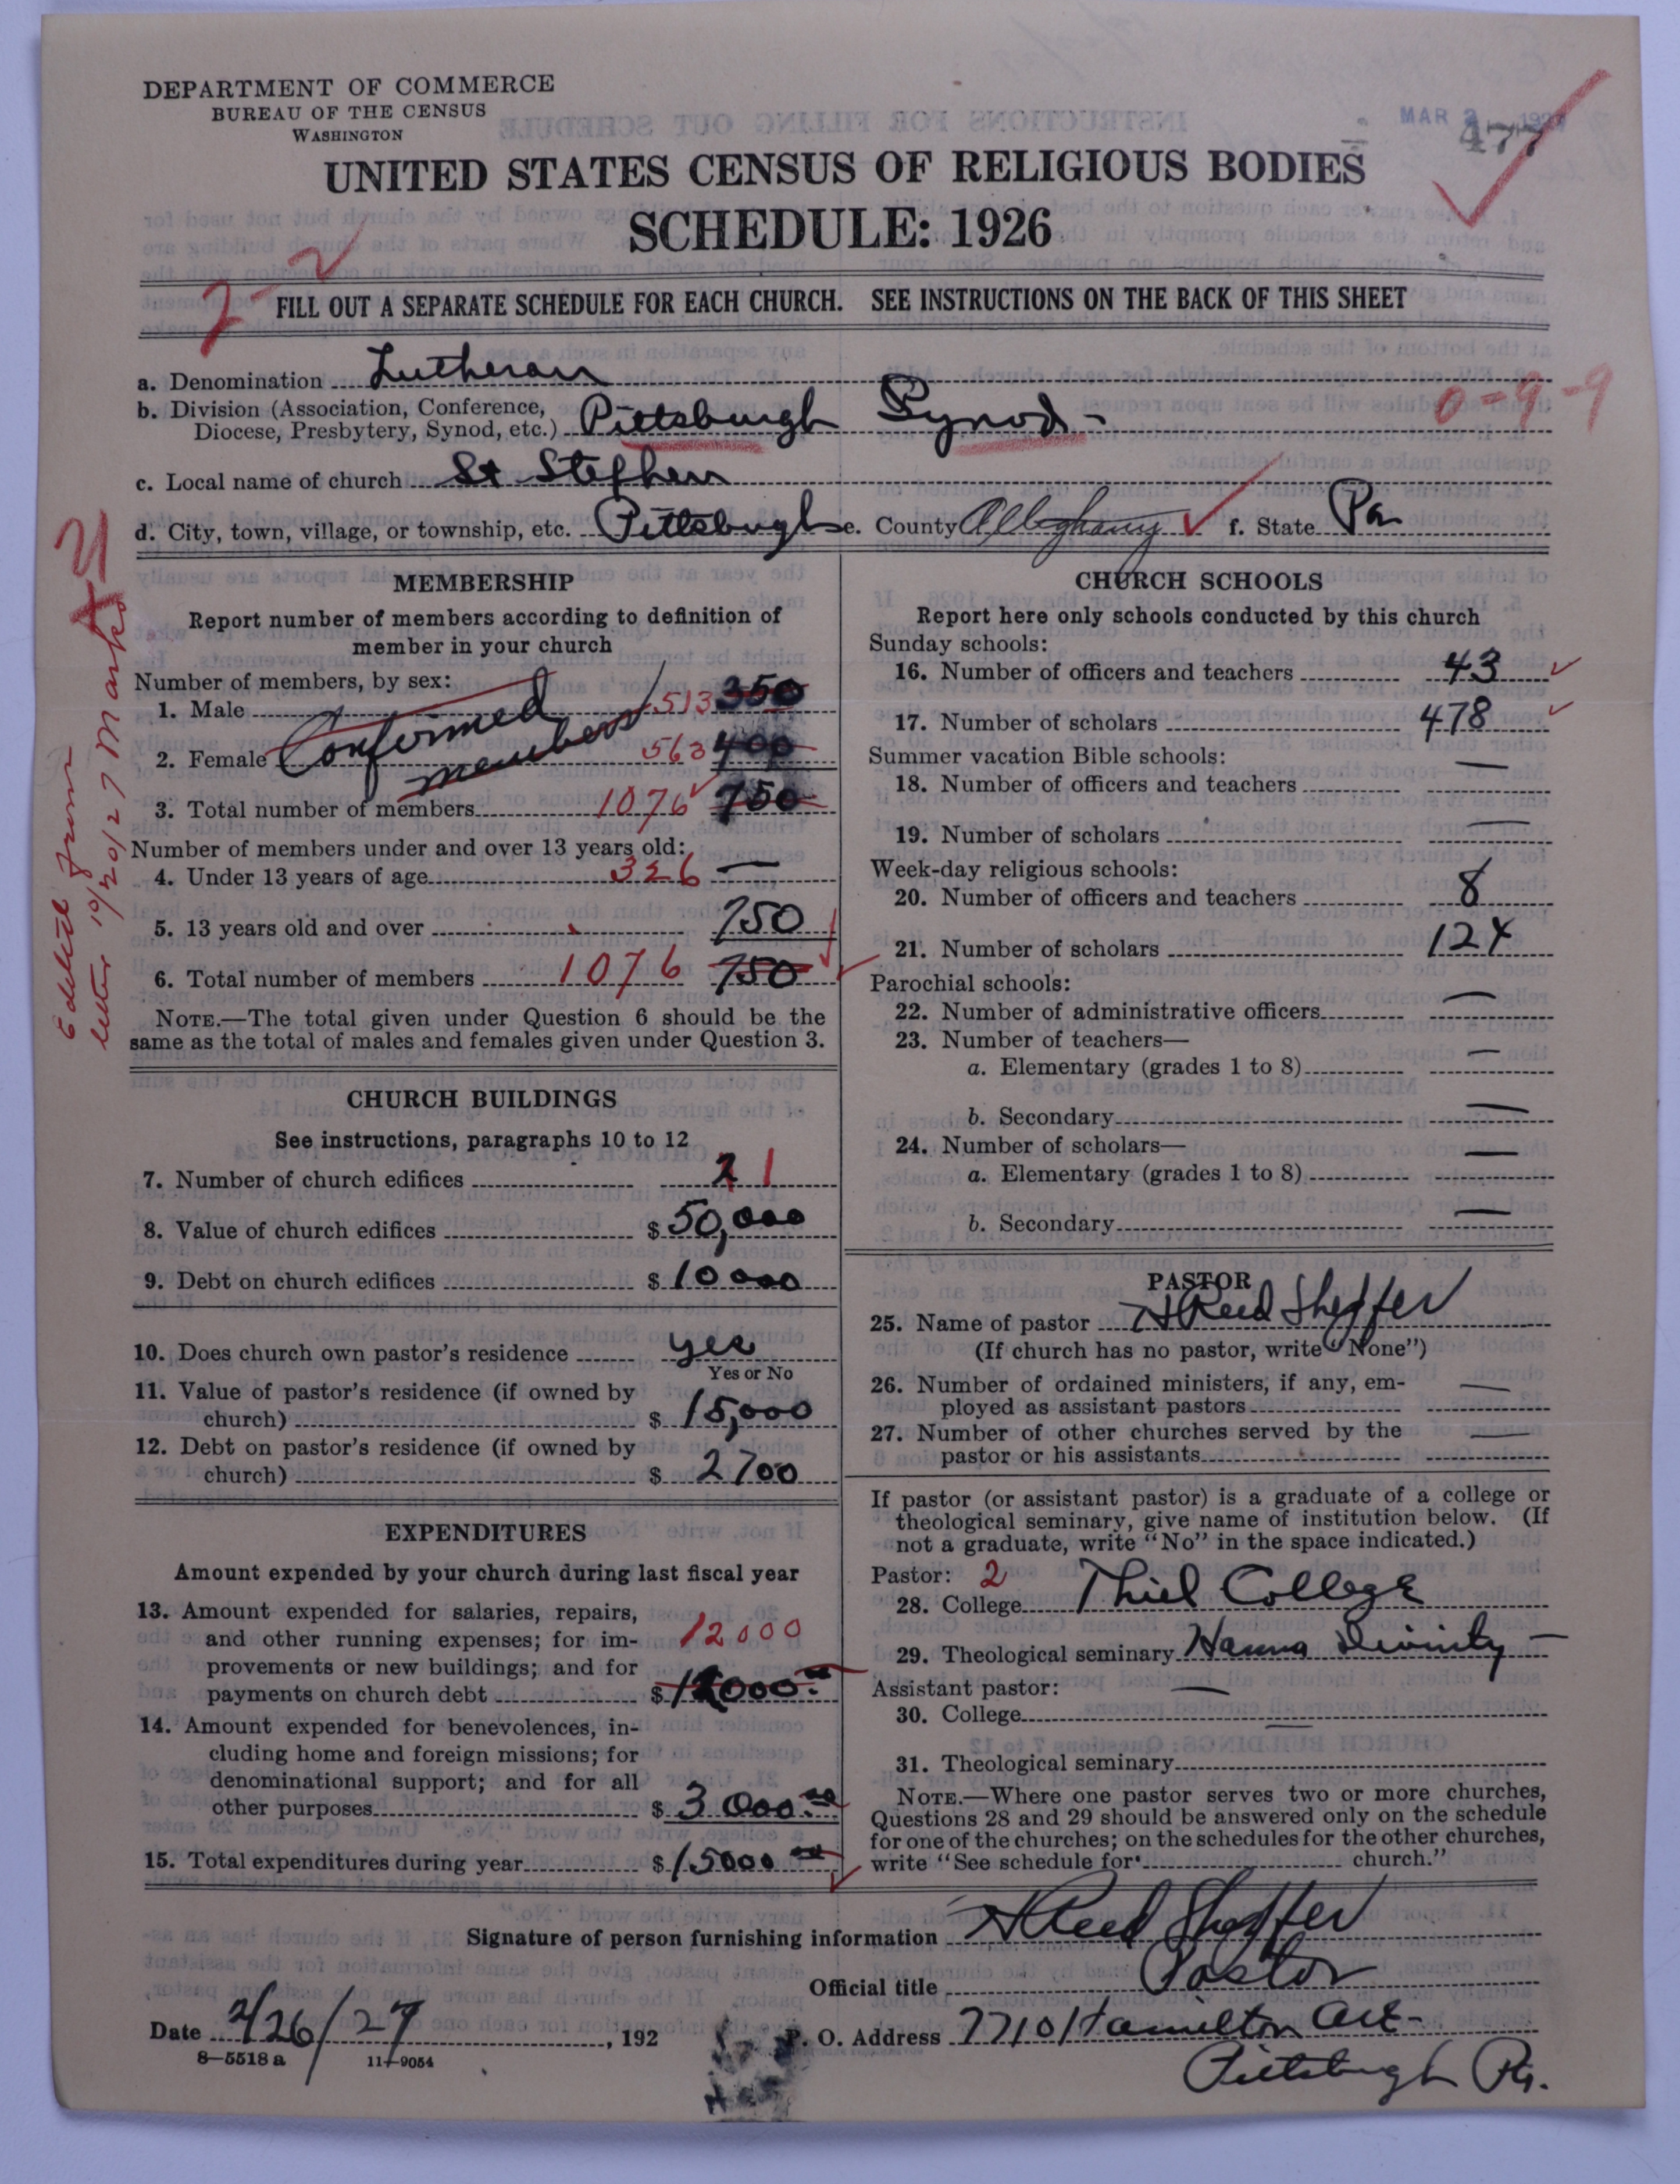 DEPARTMENT OF COMMERCE
BUREAU OF THE CENSUS
WASHINGTON
MAR 2 1927
477
UNITED STATES CENSUS OF RELIGIOUS BODIES
SCHEDULE: 1926
2-2
FILL OUT A SEPARATE SCHEDULE FOR EACH CHURCH. SEE INSTRUCTIONS ON THE BACK OF THIS SHEET
a. Denomination Lutheran
0-9-9
b. Division (Association, Conference, Diocese, Presbytery, Synod, etc.) Pittsburgh Synod -
c. Local name of church St Stephen
d. City, town, village, or township, etc. Pittsburgh e. County Alleghany f. State Pa
Edited from
letter 10/20/27 Marks
MEMBERSHIP
Report number of members according to definition of
member in your church
Number of members, by sex:
1. Male 513 350
Confirmed members
2. Female 563 400
3. Total number of members 1076 750
Number of members under and over 13 years old:
4. Under 13 years of age 326 —
5. 13 years old and over 750
6. Total number of members 1076 750
NOTE.—The total given under Question 6 should be the
same as the total of males and females given under Question 3.
CHURCH BUILDINGS
See instructions, paragraphs 10 to 12
7. Number of church edifices 2 1
8. Value of church edifices $ 50,000
9. Debt on church edifices $ 10000
10. Does church own pastor's residence yes
Yes or No
11. Value of pastor's residence (if owned by
church) $ 15,000
12. Debt on pastor's residence (if owned by
church) $ 2700
EXPENDITURES
Amount expended by your church during last fiscal year
13. Amount expended for salaries, repairs,
and other running expenses; for im-
12000
provements or new buildings; and for
payments on church debt $ 12000.00
14. Amount expended for benevolences, in-
cluding home and foreign missions; for
denominational support; and for all
other purposes $ 3000.00
15. Total expenditures during year $ 15000 00
CHURCH SCHOOLS
Report here only schools conducted by this church
Sunday schools:
16. Number of officers and teachers 43
17. Number of scholars 478
Summer vacation Bible schools:
18. Number of officers and teachers —
19. Number of scholars —
Week-day religious schools:
20. Number of officers and teachers 8
21. Number of scholars 124
Parochial schools:
22. Number of administrative officers —
23. Number of teachers—
a. Elementary (grades 1 to 8) —
b. Secondary —
24. Number of scholars—
a. Elementary (grades 1 to 8) —
b. Secondary —
PASTOR
25. Name of pastor H Reed Shepfer
(If church has no pastor, write "None")
26. Number of ordained ministers, if any, em-
ployed as assistant pastors —
27. Number of other churches served by the
pastor or his assistants —
If pastor (or assistant pastor) is a graduate of a college or
theological seminary, give name of institution below. (If
not a graduate, write "No" in the space indicated.)
Pastor: 2
28. College Thiel College
29. Theological seminary Hamma Divinity —
Assistant pastor: —
30. College —
31. Theological seminary
NOTE.—Where one pastor serves two or more churches,
Questions 28 and 29 should be answered only on the schedule
for one of the churches; on the schedules for the other churches,
write "See schedule for church."
Signature of person furnishing information H Reed Shepfer
Official title Pastor
Date 2/26/27, 192
P. O. Address 7710 Hamilton Ave -
Pittsburgh Pa.
8—5518 a 11—9054